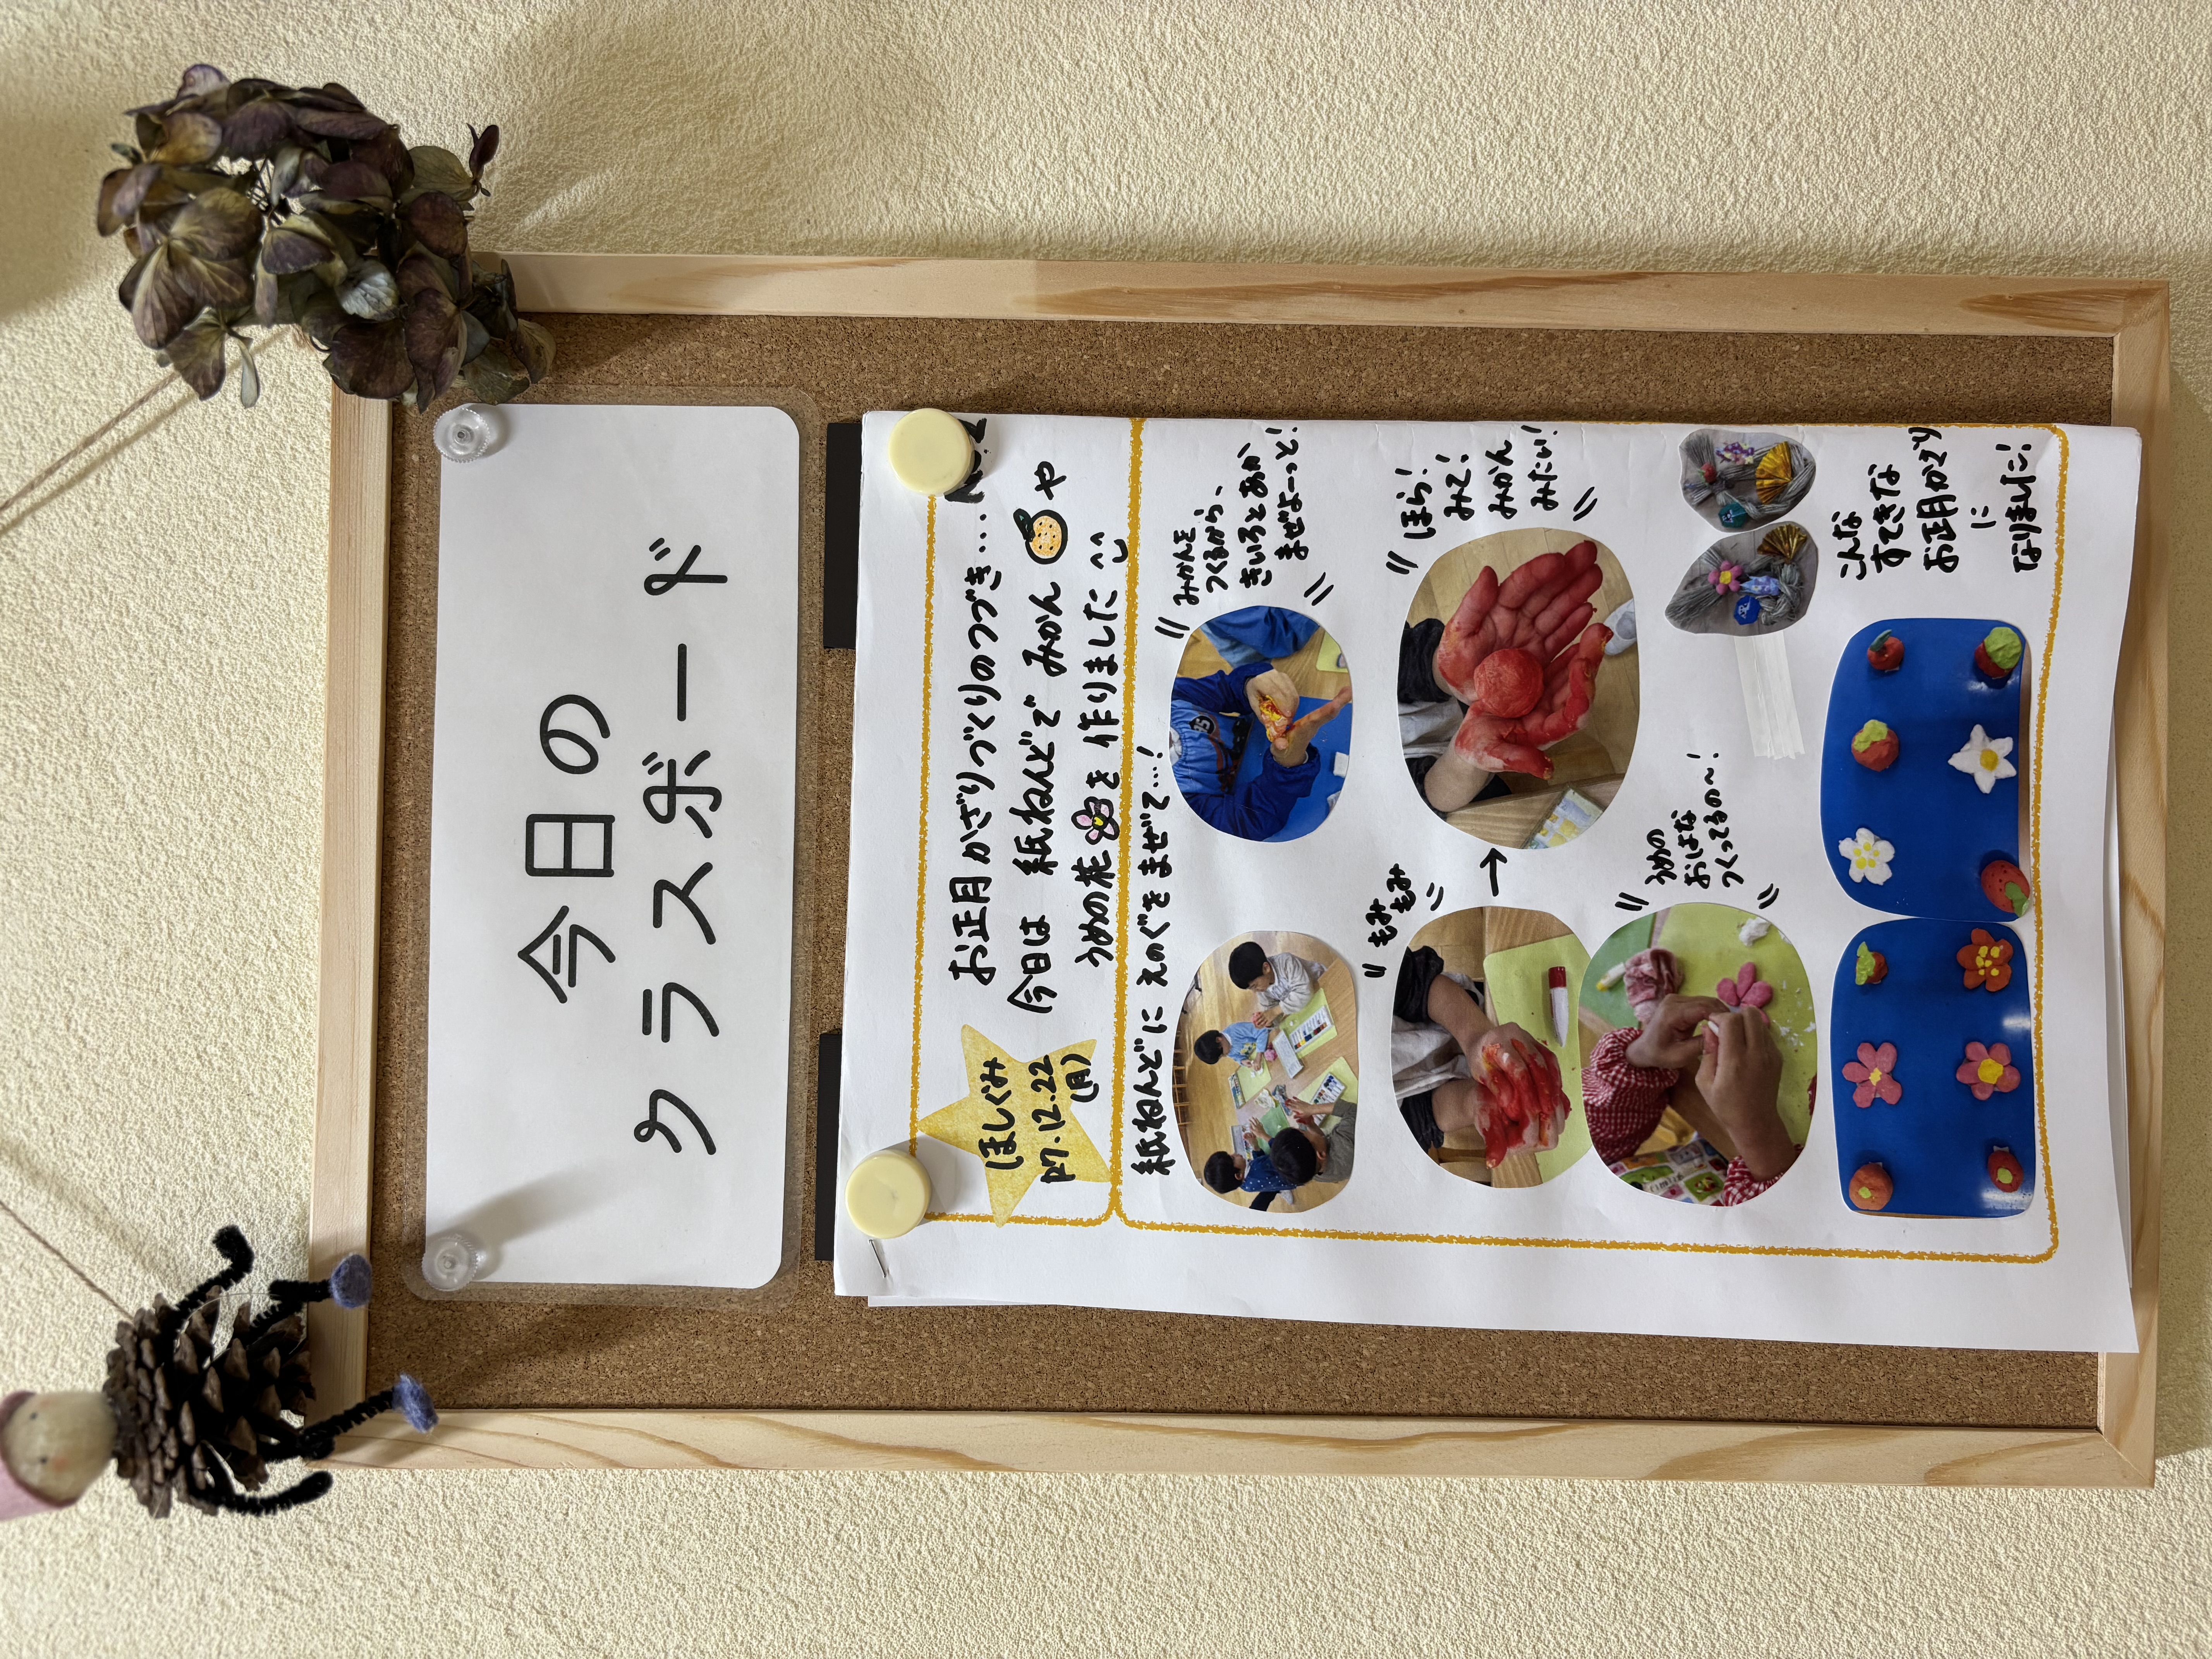 今日の
クラスボード
ほしぐみ
R7.12.22
(月)
お正月かざりづくりのつづき…
今日は 紙ねんどで みかん や
うめの花 を 作りました
紙ねんどに えのぐを まぜて…!
みかんを
つくるから、
きいろとあか
まぜよーっと!
もみ
もみ
→
ほら!
みて!
みかん
みたい!
うめの
おはな
つくってるの〜!
こんな
すてきな
お正月かざり
に
なりました!